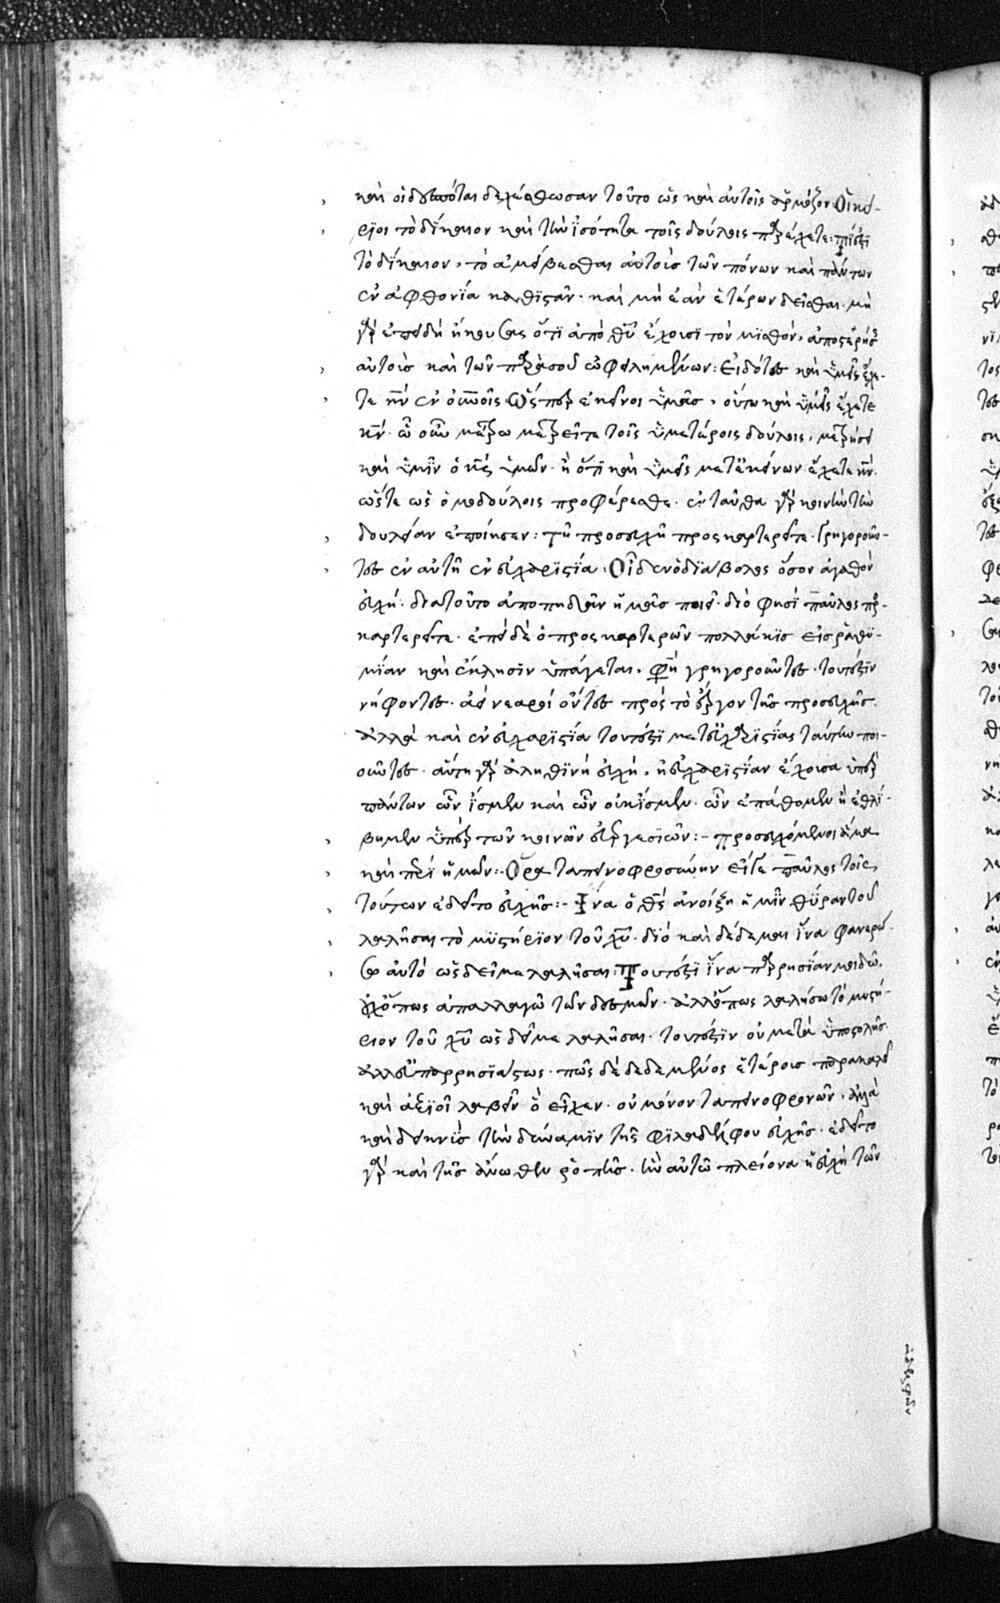 καὶ οἱ δεσπόται δεχέσθωσαν τοῦτο ὡς καὶ αὐτοῖς ἁρμόζον· Οἱ κύ-
ριοι τὸ δίκαιον καὶ τὴν ἰσότητα τοῖς δούλοις παρέχετε·
τὸ δίκαιον, τὸ ἀμείβεσθαι αὐτοὺς τῶν πόνων καὶ πάντων
ἐν ἀφθονία καθιστᾶν· καὶ μὴ ἐᾶν ἑτέρων δεῖσθαι· μὴ
γὰρ ἐπειδὴ ἤκουσας ὅτι ἀπὸ θῦ ἔχουσι τὸν μισθὸν, ἀποστερήσης
αὐτοὺς καὶ τῶν παρὰ σοῦ ὠφελημένων: Εἰδότες καὶ ὑμεῖς ἔχε-
τε κν ἐν οὐνοῖς Ὥσπερ ἐκεῖνοι ὑμᾶς, οὕτω καὶ ὑμεῖς ἔχετε
κν· ὧ οὖν μέτρω μετρεῖτε τοῖς ὑμετέροις δούλοις, μετρήσει
καὶ ὑμῖν ὁ κς ὑμῶν· ἢ ὅτι καὶ ὑμεῖς μετ' ἐκείνων ἔχετε κν·
ὥστε ὡς ὁμοδούλοις προσφέρεσθε· ἐνταῦθα γὰρ κοινὴν τὴν
δουλείαν ἐποίησεν: Τῆ προσευχῆ προσκαρτερεῖτε· Γρηγοροῦν-
τες ἐν αὐτῆ ἐν εὐχαριστία· Οἶδεν ὁ διάβολος ὅσον ἀγαθὸν
εὐχή· διατοῦτο ἀποπηδᾶν ἡμᾶς ποιεῖ· διό φησι παῦλος προσ-
καρτερεῖτε· ἐπεὶ δὲ ὁ προσκαρτερῶν πολλάκις εἰς ῥαθυ-
μίαν καὶ ἔκλυσιν ὑπάγεται, φησὶ γρηγοροῦντες· τουτέστιν
νήφοντες· ἀεὶ νεαροὶ ὄντες πρὸς τὸ ἔργον τῆς προσευχῆς·
ἀλλὰ καὶ ἐν εὐχαριστία τουτέστι μετ' εὐχαριστίας ταύτην ποι-
οῦντες· αὕτη γὰρ ἀληθινὴ εὐχὴ, ἡ εὐχαριστίαν ἔχουσα ὑπὲρ
πάντων ὧν ἴσμεν καὶ ὧν οὐκ ἴσμεν· ὧν ἐπάθομεν ἢ ἐθλί-
βημεν ὑπὲρ τῶν κοινῶν εὐεργεσιῶν:- Προσευχόμενοι ἅμα
καὶ περὶ ἡμῶν:- Ὅρα ταπεινοφροσύνην εἴγε παῦλος τῆς
τούτων ἐδεῖτο εὐχῆς:- Ἵνα ὁ θς ἀνοίξη ἡμῖν θύραν τοῦ
λαλῆσαι τὸ μυστήριον τοῦ χῦ· διὸ καὶ δέδεμαι ἵνα φανερώ-
σω αὐτὸ ὡς δεῖ με λαλῆσαι: Τουτέστι ἵνα παρρησίαν μοι δῶ,
οὐχ ὅπως ἀπαλλαγῶ τῶν δεσμῶν· ἀλλ' ὅπως λαλήσω τὸ μυστή-
ριον τοῦ χῦ ὡς δεῖ με λαλῆσαι· τουτέστιν οὐ μετὰ ὑποστολῆς·
πῶς δὲ δεδεμένος ἑτέρους παρακαλεῖ
καὶ ἀξιοῖ λαβεῖν ὃ εἶχεν· οὐ μόνον ταπεινοφρονῶν, ἀλλὰ
καὶ δεικνὺς τὴν δύναμιν τῆς φιλαδέλφου εὐχῆς· ἐδεῖτο
γὰρ καὶ τῆς ἄνωθεν ῥοπῆς· ἣν αὐτῶ πλείονα ἡ εὐχὴ τῶν
ἀδελφῶν